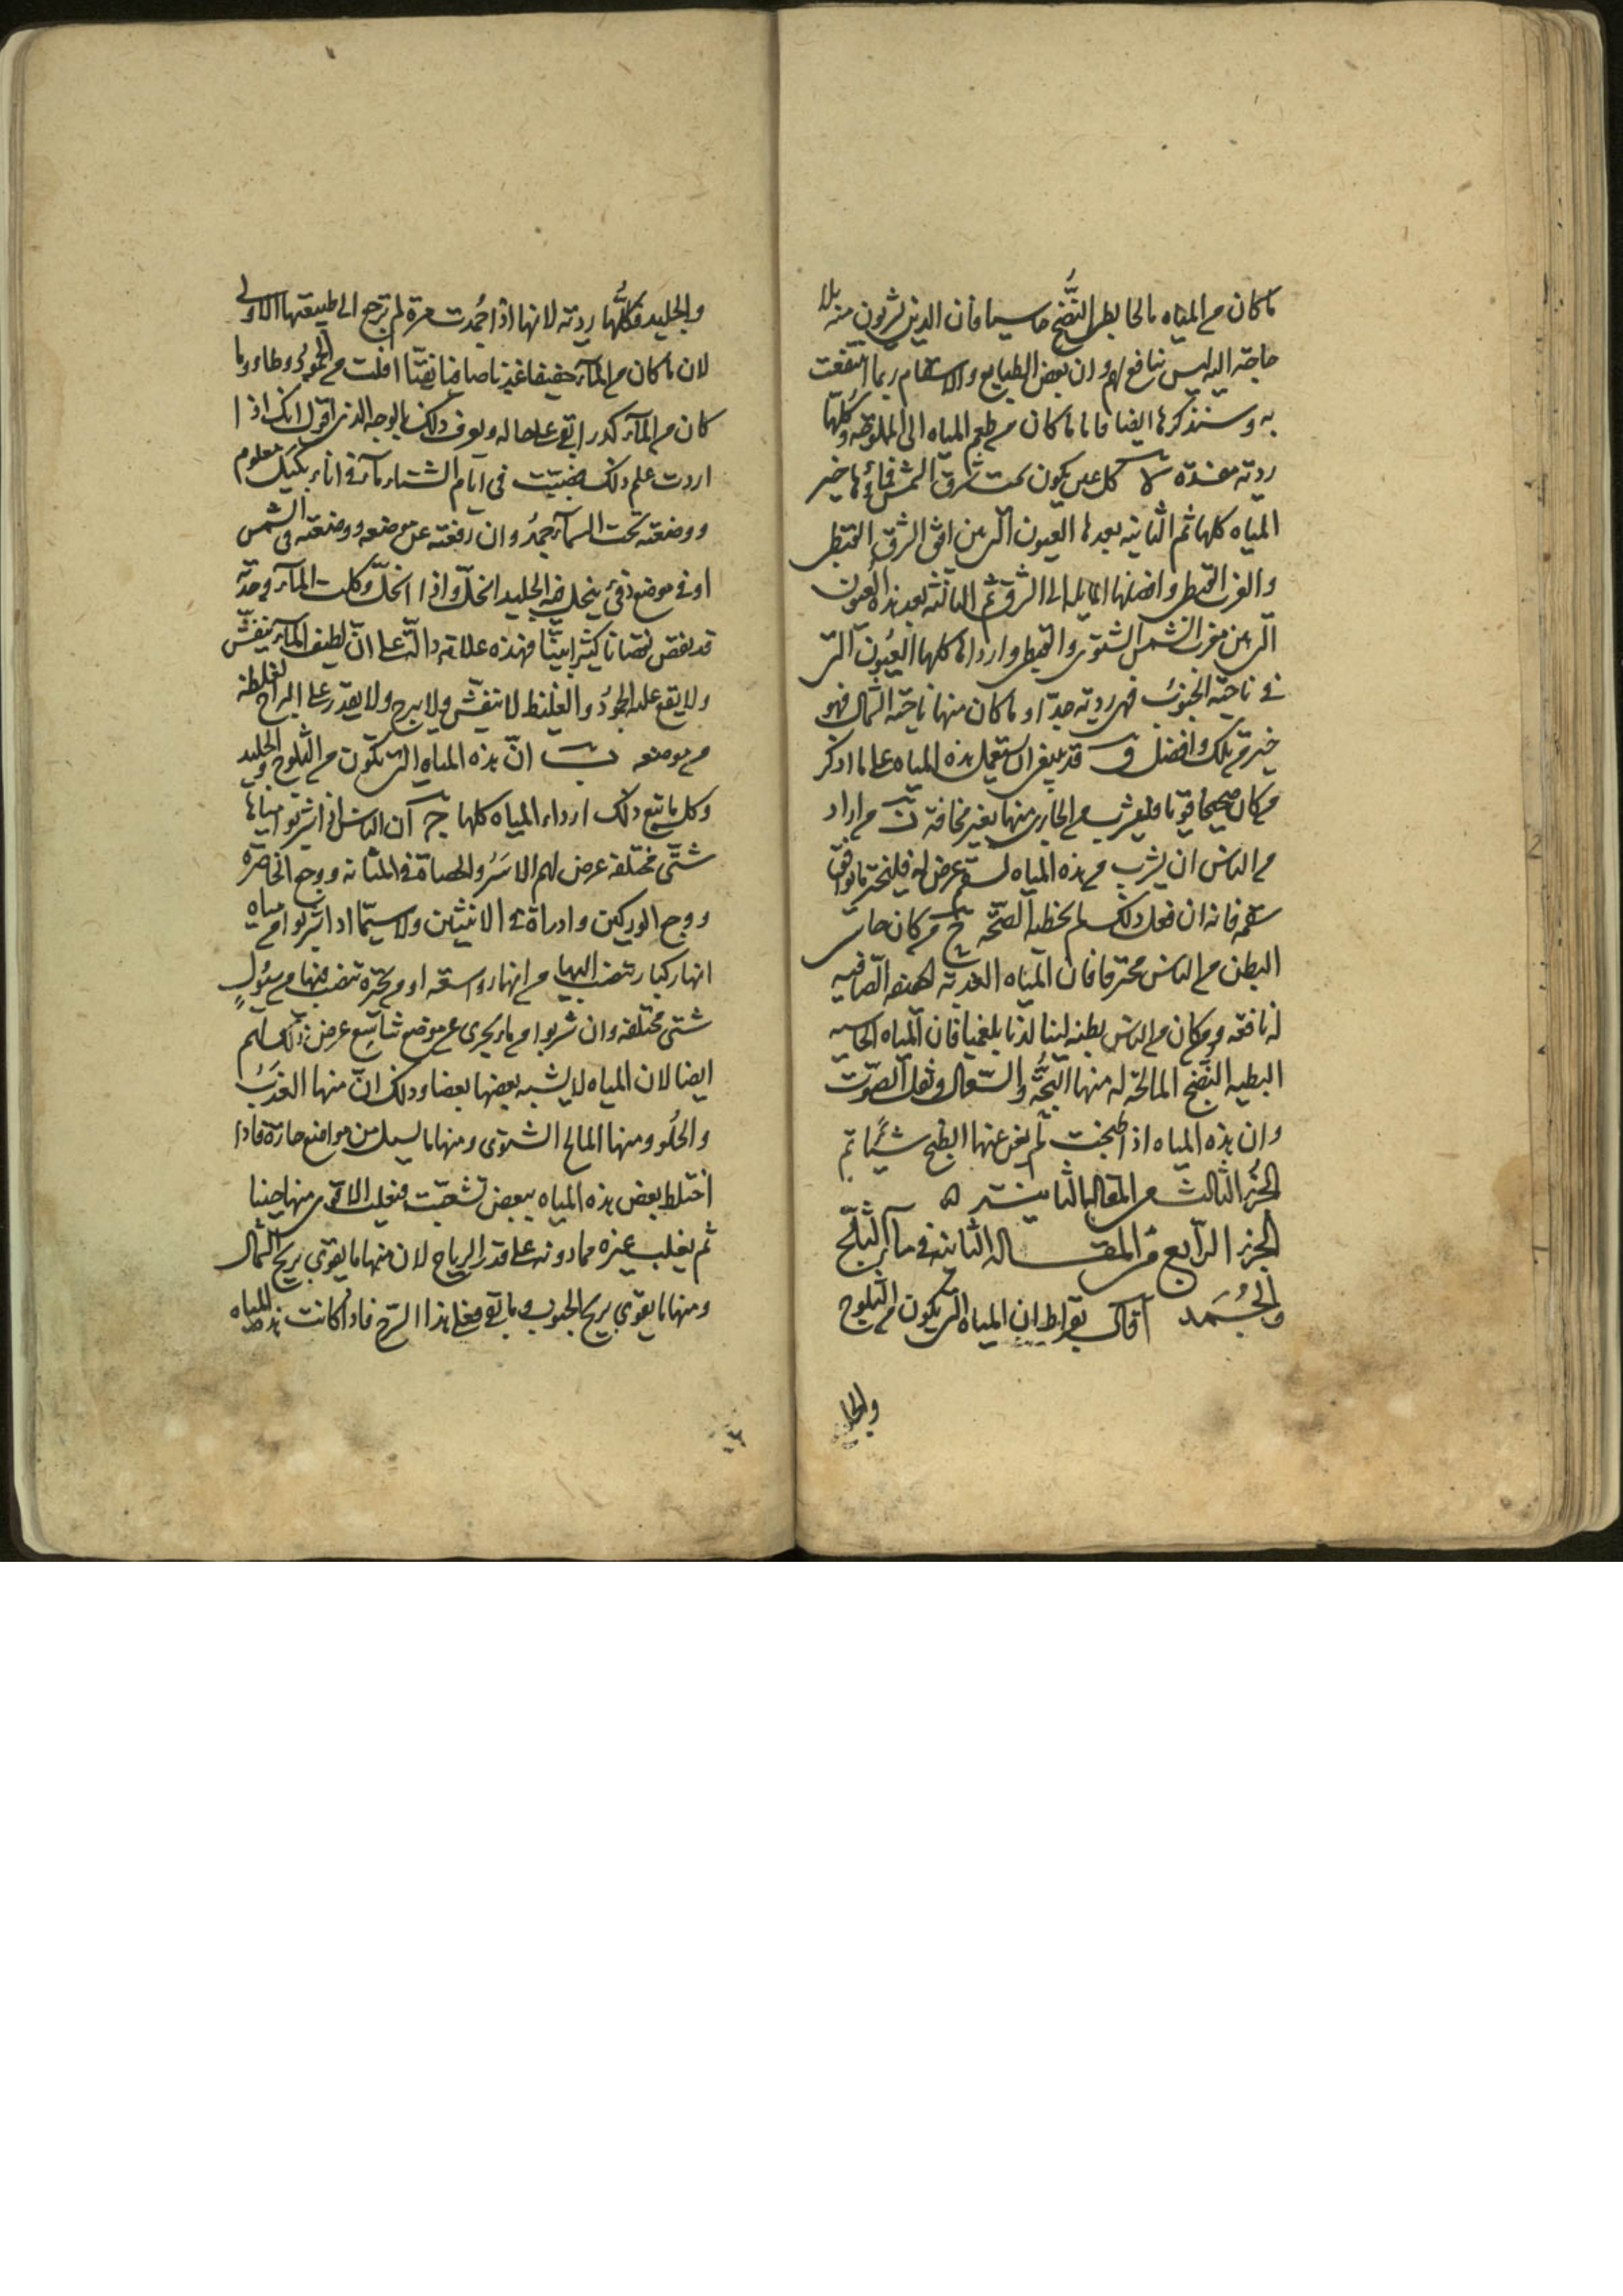 ما كان من المياه مالحا بطى النُّضج جاسيا فان الذين يشربون منه بلا
حاجة اليه ليس بنافع لهم وان بعض الطبايع والاسقام ربما انتفعت
به وسنذكرها ايضا فاما ما كان من طعم المياه الى الملوحة وكلها
ردية مفسدة كل عين يكون سمت شرق الشمس فماؤها خير
المياه كلها ثم الثانية بعدها العيون التى بين افق الشرق القيظى
والغرب القيظى وافضلها المايله الى الشرق ثم الثالثة بعد هذه العيون
التى بين مغرب الشمس الشتوى والقيظى وارداها كلها العُيون التى
فى ناحية الجنوب فهى ردية جدّا وما كان منها ناحية الشمال فهو
خير من تلك وافضل قد ينبغى ان يستعمل هذه المياه على ما اذكر
من كان صحيحا قويا فليشرب من الجارى منها بغير مخافة من اراد
من الناس ان يشرب من هذه المياه لسقم عرض له فليتحر ما يوافق
سقمه فانه ان فعل ذلك لم يخطيه الصّحّة من كان جاسى
البطن من الناس محترقا فان المياه العذبة الخفيفه الصّافيه
له نافعه ومن كان من الناس بطنه لينا لدنا بلغميا فان المياه الجاسيه
البطيه النّضج المالحة له منها البُحّة والسّعال وثقل الصّوت
وان هذه المياه اذا طبخت لم يغن عنها الطبخ شيًا تم
الجُزء الثالث من المقالة الثانية ه
الجزء الرّابع من المقالة الثانية فى ماء الثّلج
والجُمد آ قال بقراط ان المياه التى يكون من الثلوج
والجليد
والجليد فكلُّها ردية لانها اذا جُمدت مرة لم ترجع الى طبيعتها الاولى
لان ما كان من الماء خفيفا عذبا صافيا نقيّا افلت من الجمود وطار وما
كان من الماء كدرا بقى على حاله ويعرف ذلك بالوجه الذى اقول انك اذا
اردت علم ذلك فصببت فى ايام الشتاء ماء فى اناء بكيل معلوم
ووضعته تحت السماء جمدُ وان رفعته عن موضعه ووضعته فى الشمس
او فى موضع دفئ ينحل فيه الجليد انحلّ واذا انحلّ وكلت الماء وجدته
قد نقص نقصانا كثيرا بيّنا فهذه علامة دالّة على انّ لطيف الماء يتفشّى
ولا يقع عليه الجمودُ والغليظ لا يتفشّى ولا يبرح ولا يقدر على البراح لغلظه
من موضعه ب انّ هذه المياه التى تكون من الثّلوج والجليد
وكل ما يتبع ذلك ارداء المياه كلها ج ان الناس اذا شربوا مياها
شتّى مختلفة عرض لهم الاسَرُ والحصاة فى المثانه ووجع الخاصرة
ووجع الوركين وادراة فى الانثيين ولا سيّما اذا شربوا من مياه
انهار كبار تنصب اليها من انهار واسعة او من بحيرة تنصب فيها من سيُولٍ
شتى مختلفة وان شربوا من ماء يجرى من موضع شاسِع عرض ذلك لهم
ايضا لان المياه لا يشبه بعضها بعضا وذلك انّ منها العذبُ
والحلُو ومنها المالح الشتوى ومنها ما يسيل من مواضع حارّة فاذا
اختلط بعض هذه المياه ببعض تشعبّت فيغلب الاقوى منها حينا
ثم يغلب غيره مما دونه على قدر الرياح لان منها ما يقوى بريح الشمال
ومنها ما يقوى بريح الجنوب وما بقى فعلى هذا الشرح فاذا كانت هذه المياه